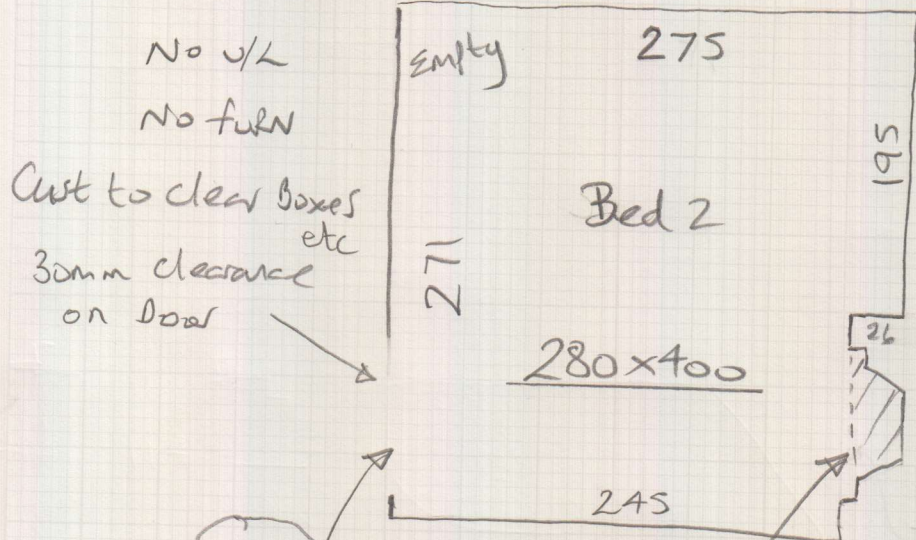 No U/L
No fuRN
Cust to clear Boxes
etc
30mm clearance
on Door
Emlty
275
195
Bed 2
271
26
280x400
245